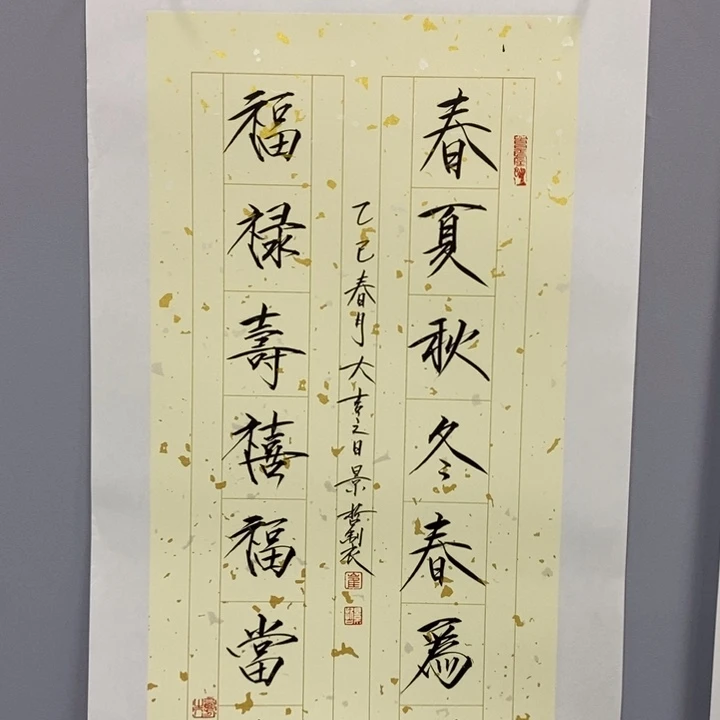 春夏秋冬春爲
乙巳春月大吉之日景哲制衣
福禄壽禧福當